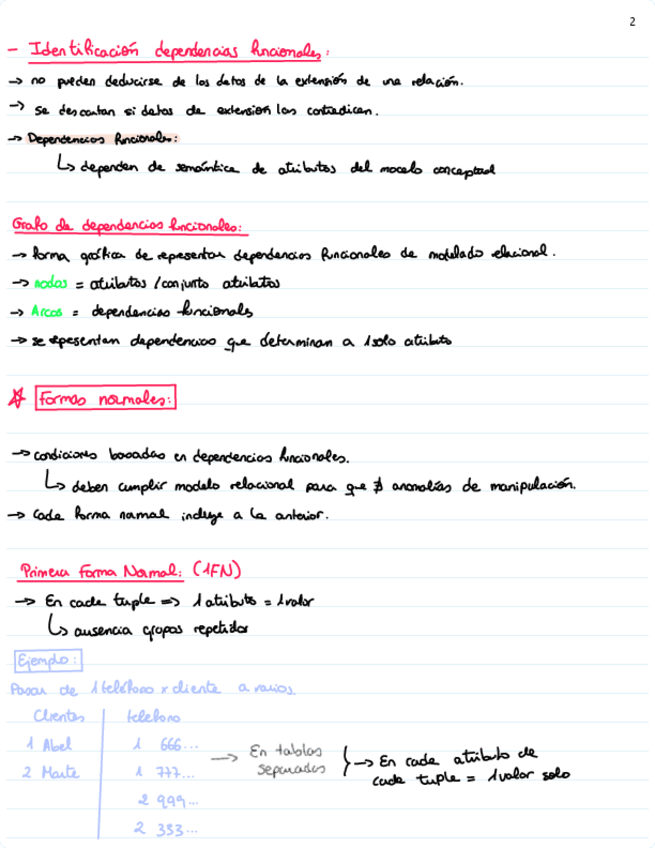 2
- Identificación dependencias funcionales:
→ no pueden deducirse de los datos de la extensión de una relación.
→ se descartan si datos de extensión las contradicen.
→ Dependencias funcionales:
↳ dependen de semántica de atributos del modelo conceptual
Grafo de dependencias funcionales:
→ forma gráfica de representar dependencias funcionales de modelado relacional.
→ nodos = atributos / conjunto atributos
→ Arcos = dependencias funcionales
→ se representan dependencias que determinan a 1 solo atributo
☆ Formas normales:
→ condiciones basadas en dependencias funcionales.
↳ deben cumplir modelo relacional para que ∄ anomalías de manipulación.
→ Cada forma normal incluye a la anterior.
Primera Forma Normal: (1FN)
→ En cada tupla => 1 atributo = 1 valor
↳ ausencia grupos repetidos
Ejemplo:
Pasar de 1 teléfono x cliente a varios.
Clientes telefono
1 Abel 1 666...
2 Marte 1 777...
2 999...
2 333...
→ En tablas separadas } → En cada atributo de
cada tupla = 1 valor solo